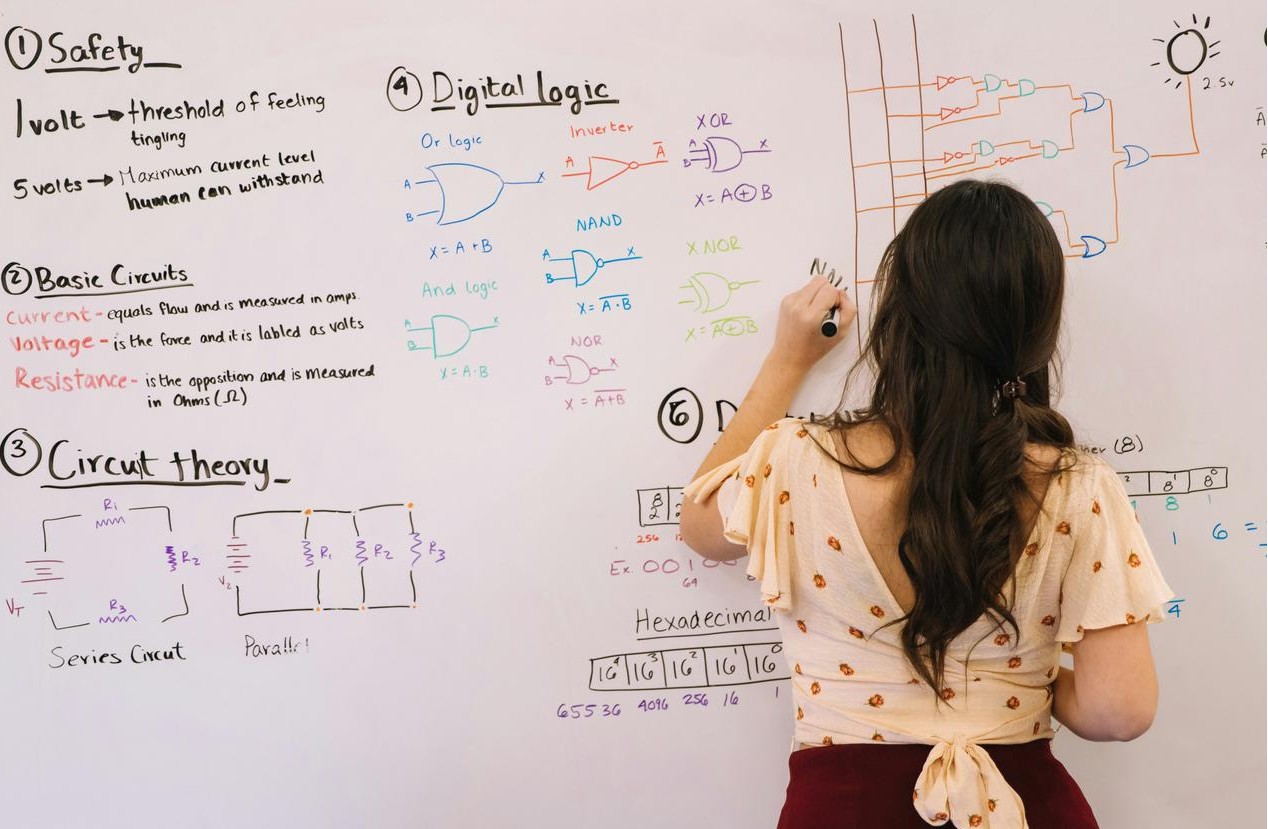 ① Safety
1 volt → threshold of feeling
tingling
5 volts → Maximum current level
human can withstand
② Basic Circuits
Current - equals flow and is measured in amps.
Voltage - is the force and it is labled as volts
Resistance - is the opposition and is measured
in Ohms (Ω)
③ Circuit theory
R1
R2
R3
VT
Series Circut
V2
R1
R2
R3
Parallel
④ Digital logic
Or logic
A
B
X
X = A + B
And logic
A
B
X
X = A·B
Inverter
A
A̅
NAND
A
B
X
X = A̅·̅B̅
NOR
A
B
X
X = A̅+̅B̅
XOR
A
B
X
X = A⊕B
X NOR
X = A̅⊕̅B̅
2.5v
256
Ex. 001
64
Hexadecimal
16⁴ 16³ 16² 16¹ 16⁰
65536 4096 256 16 1
(8)
8¹ 8⁰
8 1
1 6 =
4